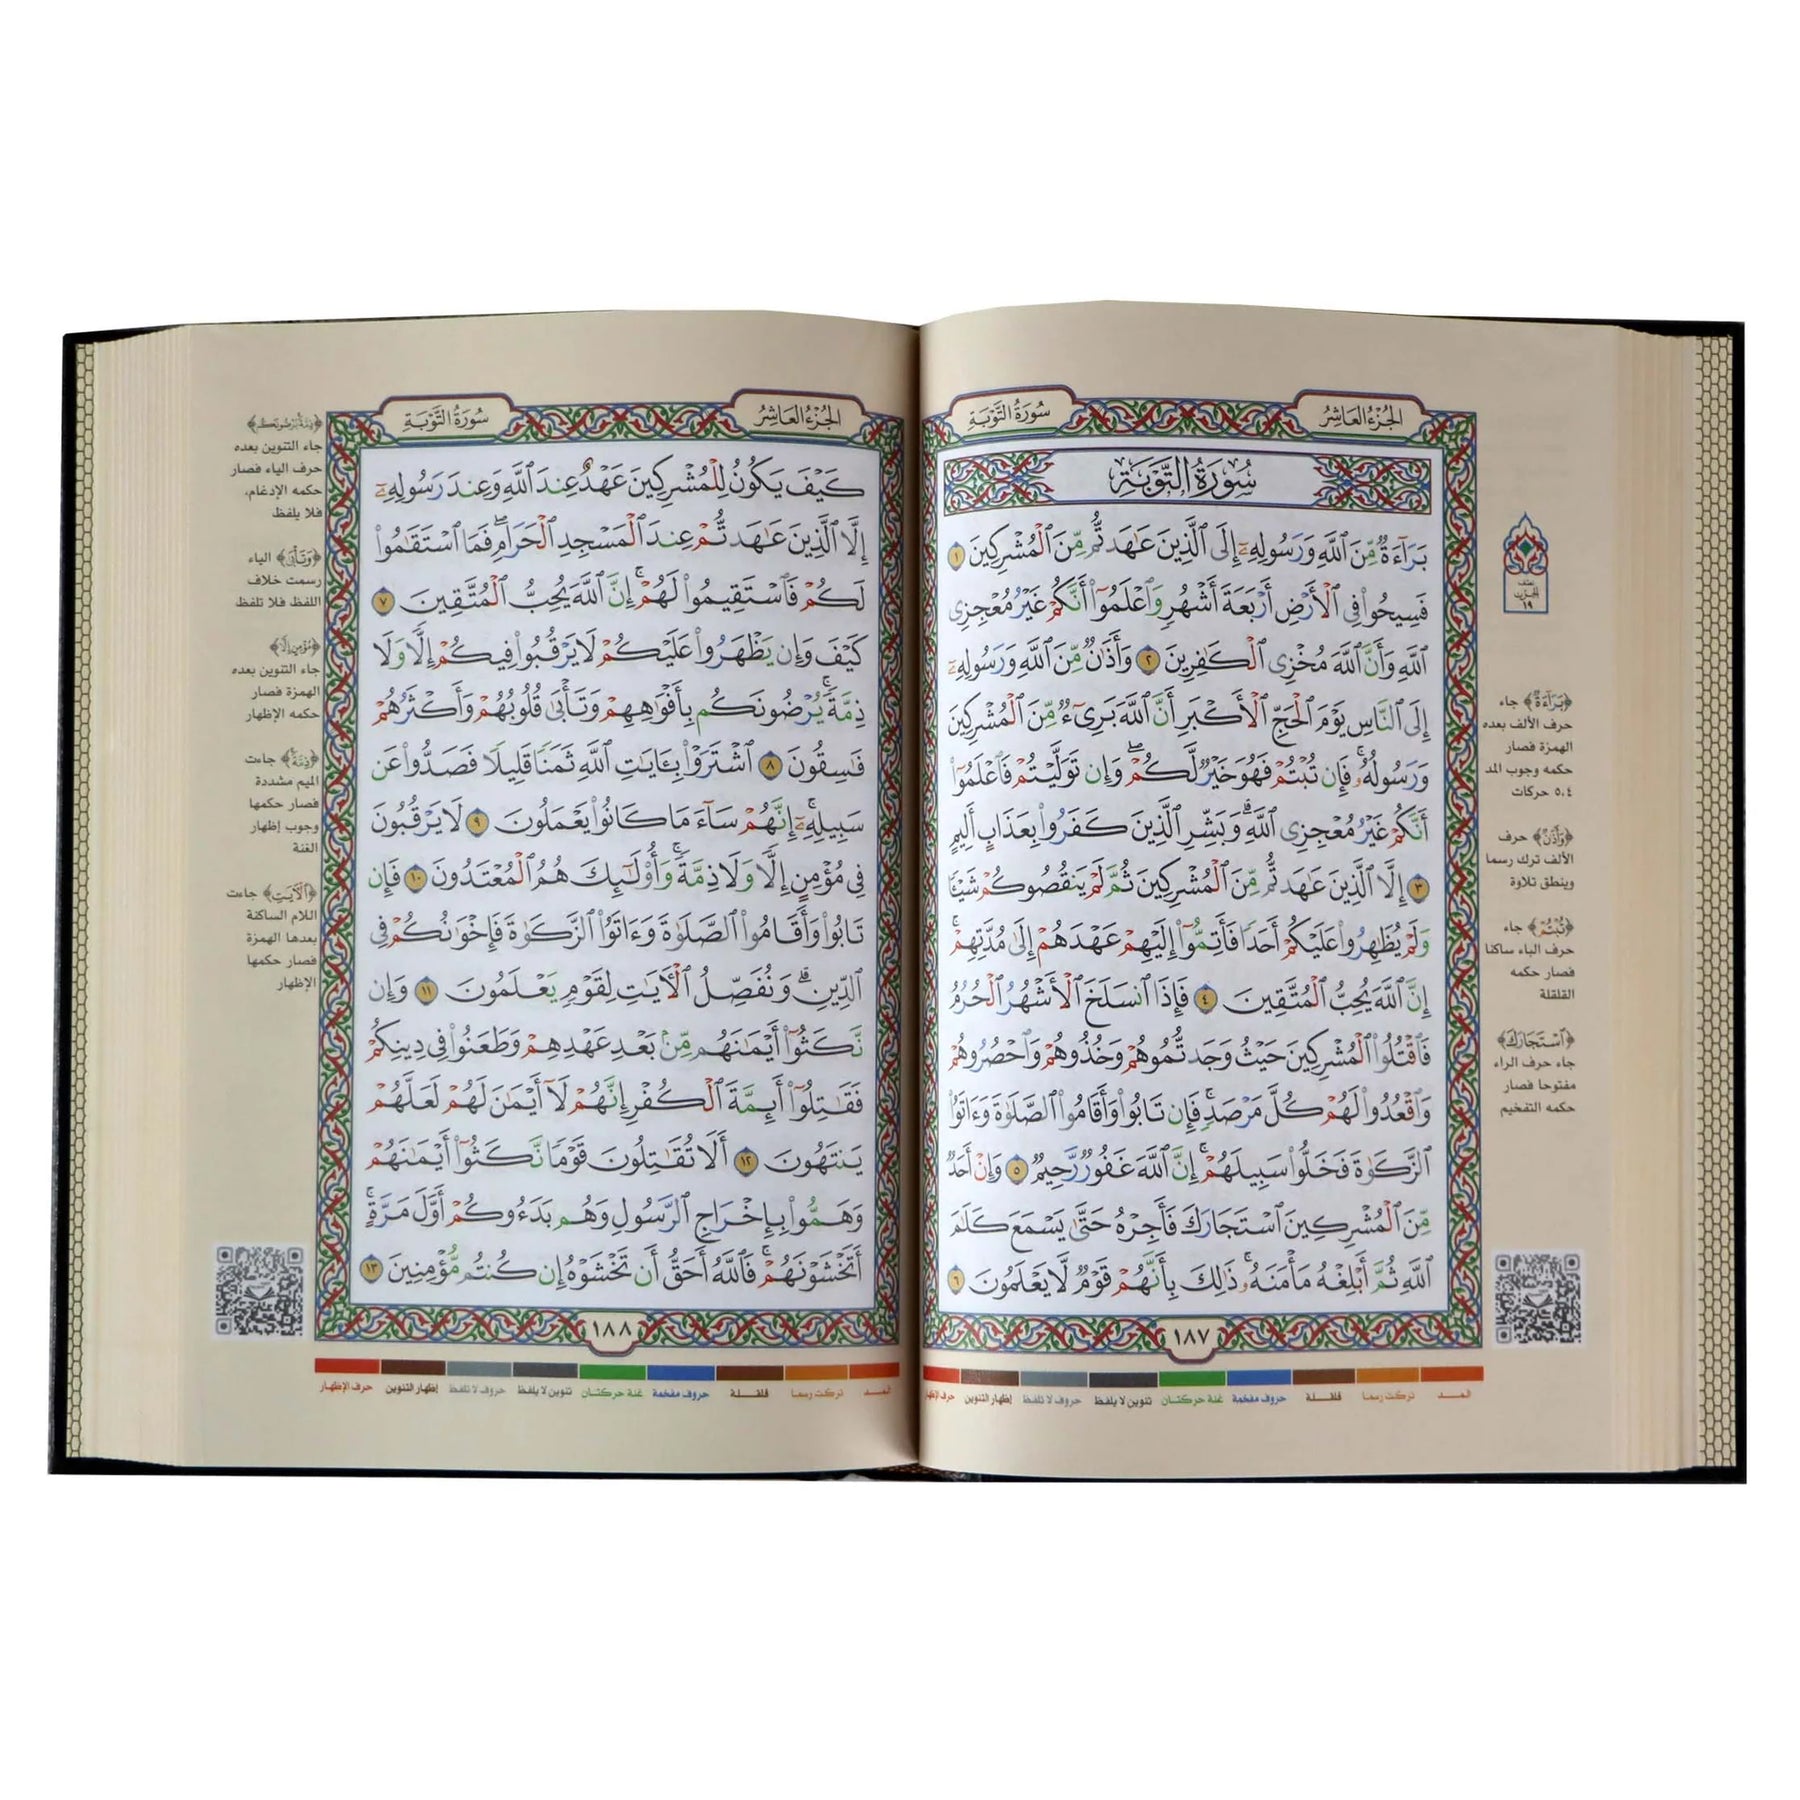 الجُزْءُ العَاشِرُ
سُورَةُ التَّوْبَةِ
سُورَةُ التَّوْبَةِ
بَرَآءَةٌ مِّنَ ٱللَّهِ وَرَسُولِهِۦٓ إِلَى ٱلَّذِينَ عَٰهَدتُّم مِّنَ ٱلْمُشْرِكِينَ ١
فَسِيحُوا۟ فِى ٱلْأَرْضِ أَرْبَعَةَ أَشْهُرٍ وَٱعْلَمُوٓا۟ أَنَّكُمْ غَيْرُ مُعْجِزِى
ٱللَّهِ وَأَنَّ ٱللَّهَ مُخْزِى ٱلْكَٰفِرِينَ ٢ وَأَذَٰنٌ مِّنَ ٱللَّهِ وَرَسُولِهِۦٓ
إِلَى ٱلنَّاسِ يَوْمَ ٱلْحَجِّ ٱلْأَكْبَرِ أَنَّ ٱللَّهَ بَرِىٓءٌ مِّنَ ٱلْمُشْرِكِينَ
وَرَسُولُهُۥ فَإِن تُبْتُمْ فَهُوَ خَيْرٌ لَّكُمْ ۖ وَإِن تَوَلَّيْتُمْ فَٱعْلَمُوٓا۟
أَنَّكُمْ غَيْرُ مُعْجِزِى ٱللَّهِ ۗ وَبَشِّرِ ٱلَّذِينَ كَفَرُوا۟ بِعَذَابٍ أَلِيمٍ
٣ إِلَّا ٱلَّذِينَ عَٰهَدتُّم مِّنَ ٱلْمُشْرِكِينَ ثُمَّ لَمْ يَنقُصُوكُمْ شَيْـًٔا
وَلَمْ يُظَٰهِرُوا۟ عَلَيْكُمْ أَحَدًا فَأَتِمُّوٓا۟ إِلَيْهِمْ عَهْدَهُمْ إِلَىٰ مُدَّتِهِمْ ۚ
إِنَّ ٱللَّهَ يُحِبُّ ٱلْمُتَّقِينَ ٤ فَإِذَا ٱنسَلَخَ ٱلْأَشْهُرُ ٱلْحُرُمُ
فَٱقْتُلُوا۟ ٱلْمُشْرِكِينَ حَيْثُ وَجَدتُّمُوهُمْ وَخُذُوهُمْ وَٱحْصُرُوهُمْ
وَٱقْعُدُوا۟ لَهُمْ كُلَّ مَرْصَدٍ ۚ فَإِن تَابُوا۟ وَأَقَامُوا۟ ٱلصَّلَوٰةَ وَءَاتَوُا۟
ٱلزَّكَوٰةَ فَخَلُّوا۟ سَبِيلَهُمْ ۚ إِنَّ ٱللَّهَ غَفُورٌ رَّحِيمٌ ٥ وَإِنْ أَحَدٌ
مِّنَ ٱلْمُشْرِكِينَ ٱسْتَجَارَكَ فَأَجِرْهُ حَتَّىٰ يَسْمَعَ كَلَٰمَ
ٱللَّهِ ثُمَّ أَبْلِغْهُ مَأْمَنَهُۥ ۚ ذَٰلِكَ بِأَنَّهُمْ قَوْمٌ لَّا يَعْلَمُونَ ٦
١٨٧
نصف
الحزب
١٩
﴿بَرَآءَةٌ﴾ جاء
حرف الألف بعده
الهمزة فصار
حكمه وجوب المد
٥،٤ حركات
﴿وَأَذَٰنٌ﴾ حرف
الألف ترك رسما
وينطق تلاوة
﴿تُبْتُمْ﴾ جاء
حرف الباء ساكنا
فصار حكمه
القلقلة
﴿ٱسْتَجَارَكَ﴾
جاء حرف الراء
مفتوحا فصار
حكمه التفخيم
المـد تركت رسما قلقلـة حروف مفخمة غنة حركتـان تنوين لا يلفظ حروف لا تلفظ إظهار التنوين حرف الإظهار
الجُزْءُ العَاشِرُ
سُورَةُ التَّوْبَةِ
كَيْفَ يَكُونُ لِلْمُشْرِكِينَ عَهْدٌ عِندَ ٱللَّهِ وَعِندَ رَسُولِهِۦٓ
إِلَّا ٱلَّذِينَ عَٰهَدتُّمْ عِندَ ٱلْمَسْجِدِ ٱلْحَرَامِ ۖ فَمَا ٱسْتَقَٰمُوا۟
لَكُمْ فَٱسْتَقِيمُوا۟ لَهُمْ ۚ إِنَّ ٱللَّهَ يُحِبُّ ٱلْمُتَّقِينَ ٧
كَيْفَ وَإِن يَظْهَرُوا۟ عَلَيْكُمْ لَا يَرْقُبُوا۟ فِيكُمْ إِلًّا وَلَا
ذِمَّةً ۚ يُرْضُونَكُم بِأَفْوَٰهِهِمْ وَتَأْبَىٰ قُلُوبُهُمْ وَأَكْثَرُهُمْ
فَٰسِقُونَ ٨ ٱشْتَرَوْا۟ بِـَٔايَٰتِ ٱللَّهِ ثَمَنًا قَلِيلًا فَصَدُّوا۟ عَن
سَبِيلِهِۦٓ ۚ إِنَّهُمْ سَآءَ مَا كَانُوا۟ يَعْمَلُونَ ٩ لَا يَرْقُبُونَ
فِى مُؤْمِنٍ إِلًّا وَلَا ذِمَّةً ۚ وَأُو۟لَٰٓئِكَ هُمُ ٱلْمُعْتَدُونَ ١٠ فَإِن
تَابُوا۟ وَأَقَامُوا۟ ٱلصَّلَوٰةَ وَءَاتَوُا۟ ٱلزَّكَوٰةَ فَإِخْوَٰنُكُمْ فِى
ٱلدِّينِ ۗ وَنُفَصِّلُ ٱلْـَٔايَٰتِ لِقَوْمٍ يَعْلَمُونَ ١١ وَإِن
نَّكَثُوٓا۟ أَيْمَٰنَهُم مِّنۢ بَعْدِ عَهْدِهِمْ وَطَعَنُوا۟ فِى دِينِكُمْ
فَقَٰتِلُوٓا۟ أَئِمَّةَ ٱلْكُفْرِ ۙ إِنَّهُمْ لَآ أَيْمَٰنَ لَهُمْ لَعَلَّهُمْ
يَنتَهُونَ ١٢ أَلَا تُقَٰتِلُونَ قَوْمًا نَّكَثُوٓا۟ أَيْمَٰنَهُمْ
وَهَمُّوا۟ بِإِخْرَاجِ ٱلرَّسُولِ وَهُم بَدَءُوكُمْ أَوَّلَ مَرَّةٍ ۚ
أَتَخْشَوْنَهُمْ ۚ فَٱللَّهُ أَحَقُّ أَن تَخْشَوْهُ إِن كُنتُم مُّؤْمِنِينَ ١٣
١٨٨
﴿ذِمَّةً يُرْضُونَكُم﴾
جاء التنوين بعده
حرف الياء فصار
حكمه الإدغام،
فلا يلفظ
﴿وَتَأْبَىٰ﴾ الياء
رسمت خلاف
اللفظ فلا تلفظ
﴿مُؤْمِنٍ إِلًّا﴾
جاء التنوين بعده
الهمزة فصار
حكمه الإظهار
﴿ذِمَّةً﴾ جاءت
الميم مشددة
فصار حكمها
وجوب إظهار
الغنة
﴿ٱلْـَٔايَٰتِ﴾ جاءت
اللام الساكنة
بعدها الهمزة
فصار حكمها
الإظهار
المـد تركت رسما قلقلـة حروف مفخمة غنة حركتـان تنوين لا يلفظ حروف لا تلفظ إظهار التنوين حرف الإظهار